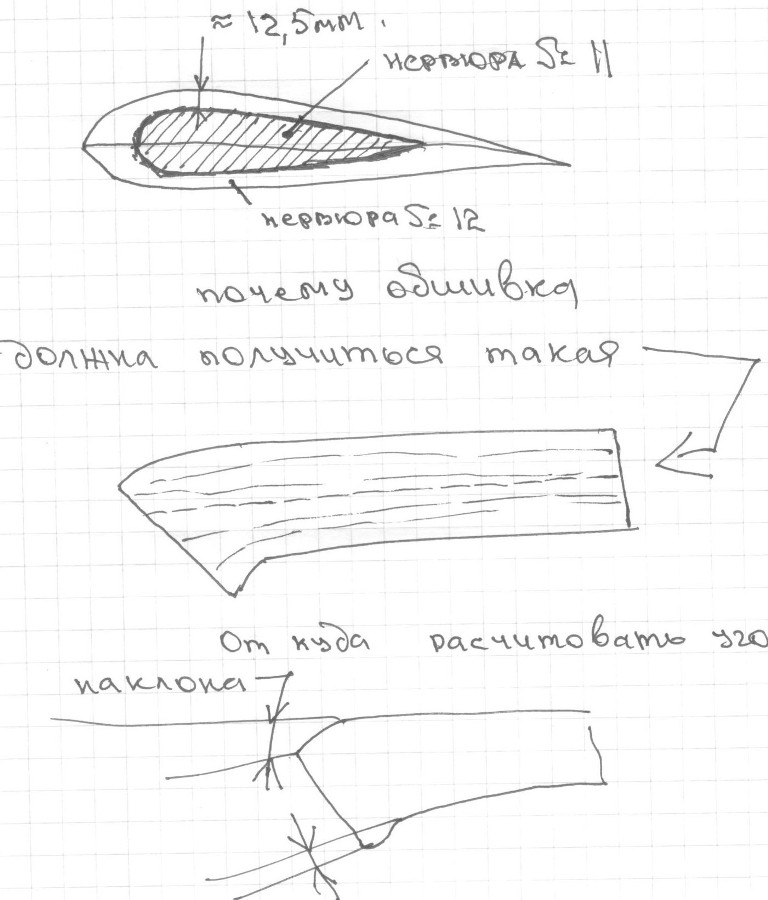 ≈ 12,5мм.
нервюра № 11
нервюра № 12
почему обшивка
должна получиться такая
От куда расчитовать уго
наклона